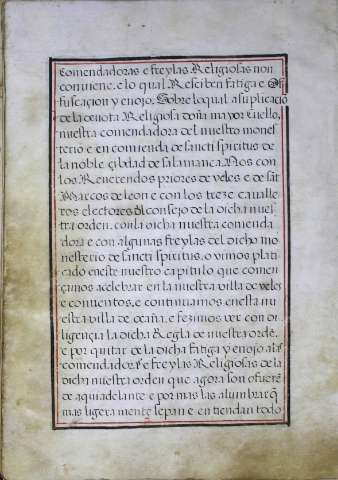 Comendadoras e freylas Religiosas non
conviene, e lo qual Resciben fatiga e Of
fuscacion y enojo. Sobre lo qual a suplicacio
de la devota Religiosa doña mayor Cuello,
nuestra comendadora del nuestro mones
terio e en comienda de sancti spiritus de
la noble çibdad de salamanca. Nos con
los Reverendos priores de veles e de sãt
Marcos de leon e con los treze cavalle
ros electores del consejo de la dicha nues
tra orden, con la dicha nuestra comenda
dora e con algunas freylas del dicho mo
nesterio de sancti spiritus, ovimos plati
cado en este nuestro capitulo que comen
çamos a celebrar en la nuestra villa de veles
e conventos, e continuamos en esta nu
estra villa de ocaña, e fezimos ver con di
ligençia la dicha Regla de nuestra ordẽ.
e por quitar de la dicha fatiga y enojo a las
comendadoras e freylas Religiosas de la
dicha nuestra orden que agora son o fuerẽ
de aqui adelante e por mas las alumbrar q̃
mas ligera mente sepan e entiendan todo